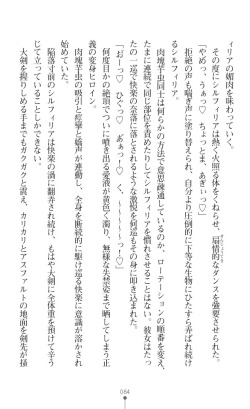 ィリアの媚肉を味わっていく。
その度にシルフィリアは熱く火照る体をくねらせ、扇情的なダンスを強要させられる。
「やめっ、うぁっ♡ ちょっとま、あぎぃっ♡」
拒絶の声も喘ぎ声に塗り替えられ、自分より圧倒的に下等な生物にひたすら弄ばれ続け
るシルフィリア。
肉塊芋虫同士は何らかの方法で意思疎通しているのか、ローテーションの順番を変え、
たまに連続で同じ部位を責めたりしてシルフィリアを慣れさせることはない。彼女はたっ
たの一巡で快楽の奈落に落とされるような激悦を何巡もその身に叩き込まれた。
「おーっ♡ ひぐっ♡ あぁっー♡ く、～～～～っー♡」
何度目かの絶頂でついに噴き出る愛液が黄色く濁り、無様な失禁姿まで晒してしまう正
義の変身ヒロイン。
肉塊芋虫の吸引と痙攣と嬌声が連動し、全身を断続的に駆け巡る快楽に意識が溶かされ
始めていた。
陥落寸前のシルフィリアは快楽の渦に翻弄され続け、もはや大剣を
じて立っていることしかできない。
大剣を握りしめる手までもガクガクと震え、カリカリとアスファルトの地面を剣先が
084